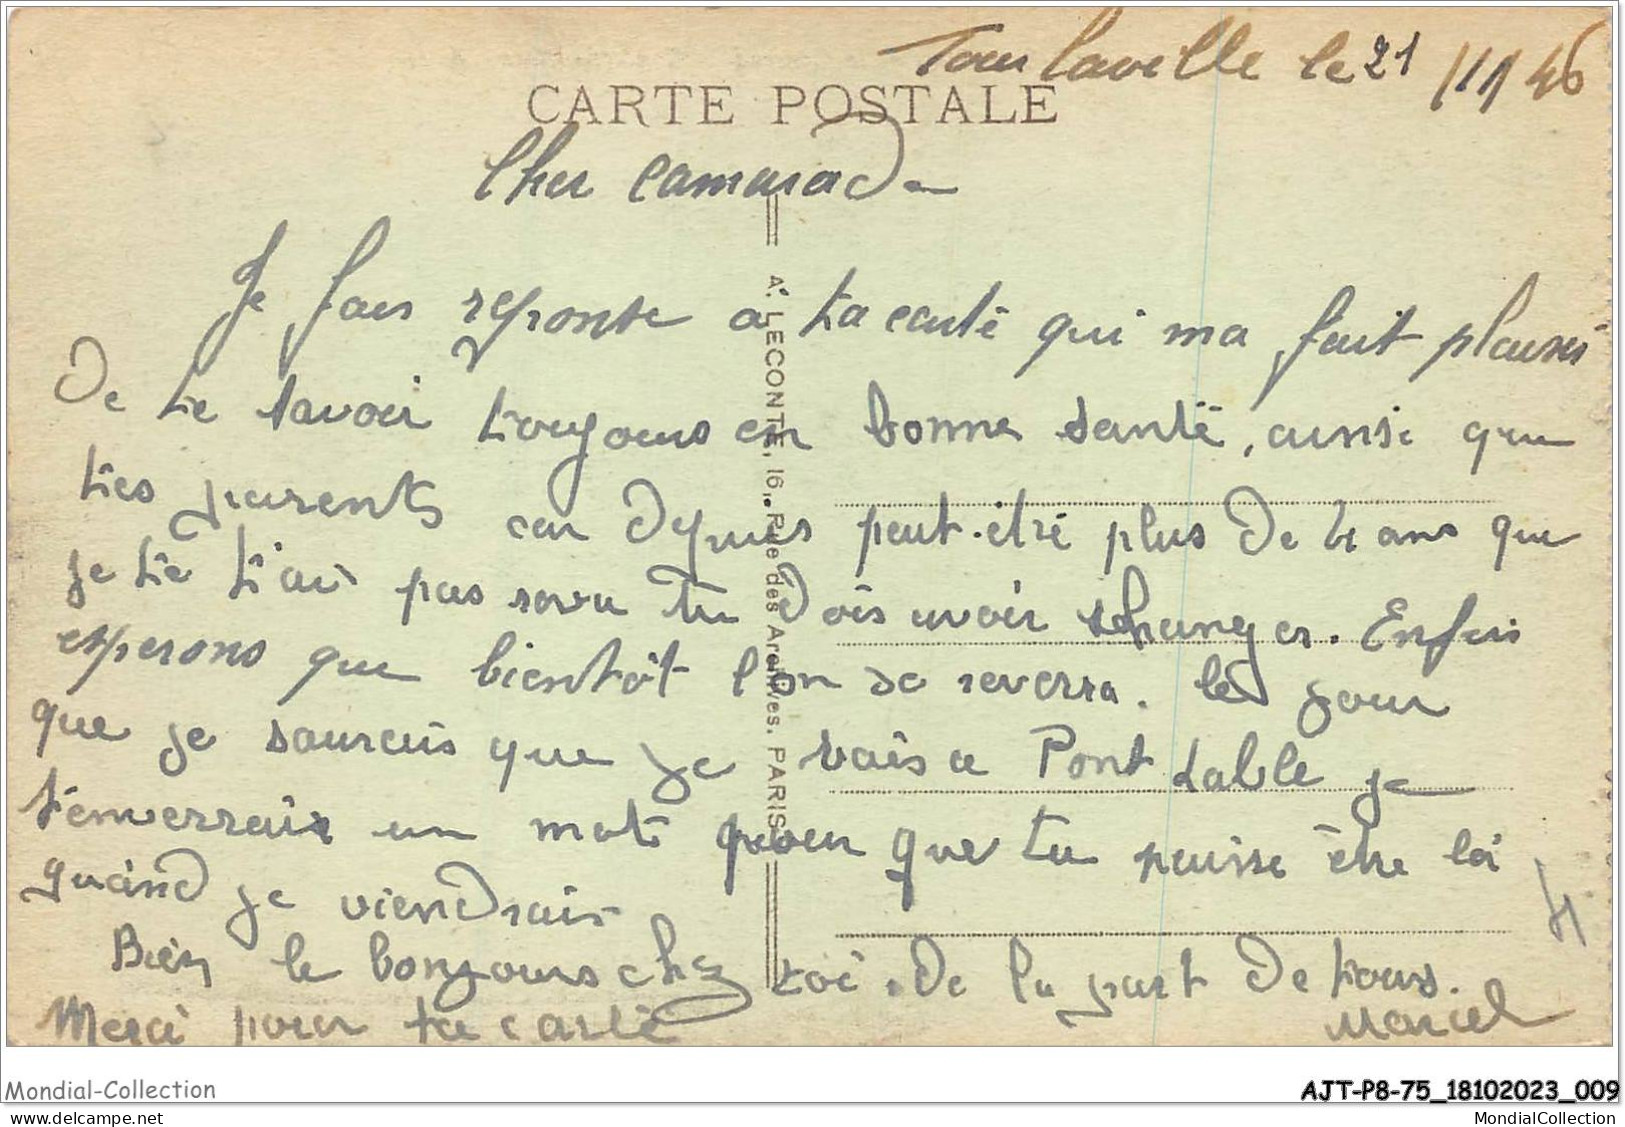 Tourlaville le 21/1/46
CARTE POSTALE
Cher Camarade
Je fais reponse a ta carte qui ma fait plaisir
De te savoir toujours en bonne santé, ainsi que
tes parents car Depuis peut-etre plus De 4 ans que
je te t'ai pas revu tu Dois avoir changer. Enfin
esperons que bientôt l'on se reverra. le jour
que je saurais que je vais a Pont Labbé je
t'enverrais un mot pour que tu puisse être là
quand je viendrais
Bien le bonjours chez toi. De la part De tous.
Merci pour ta carte Marcel
A. LECONTE, 16, Rue des Archives. PARIS
Mondial-Collection
AJT-P8-75_18102023_009
MondialCollection